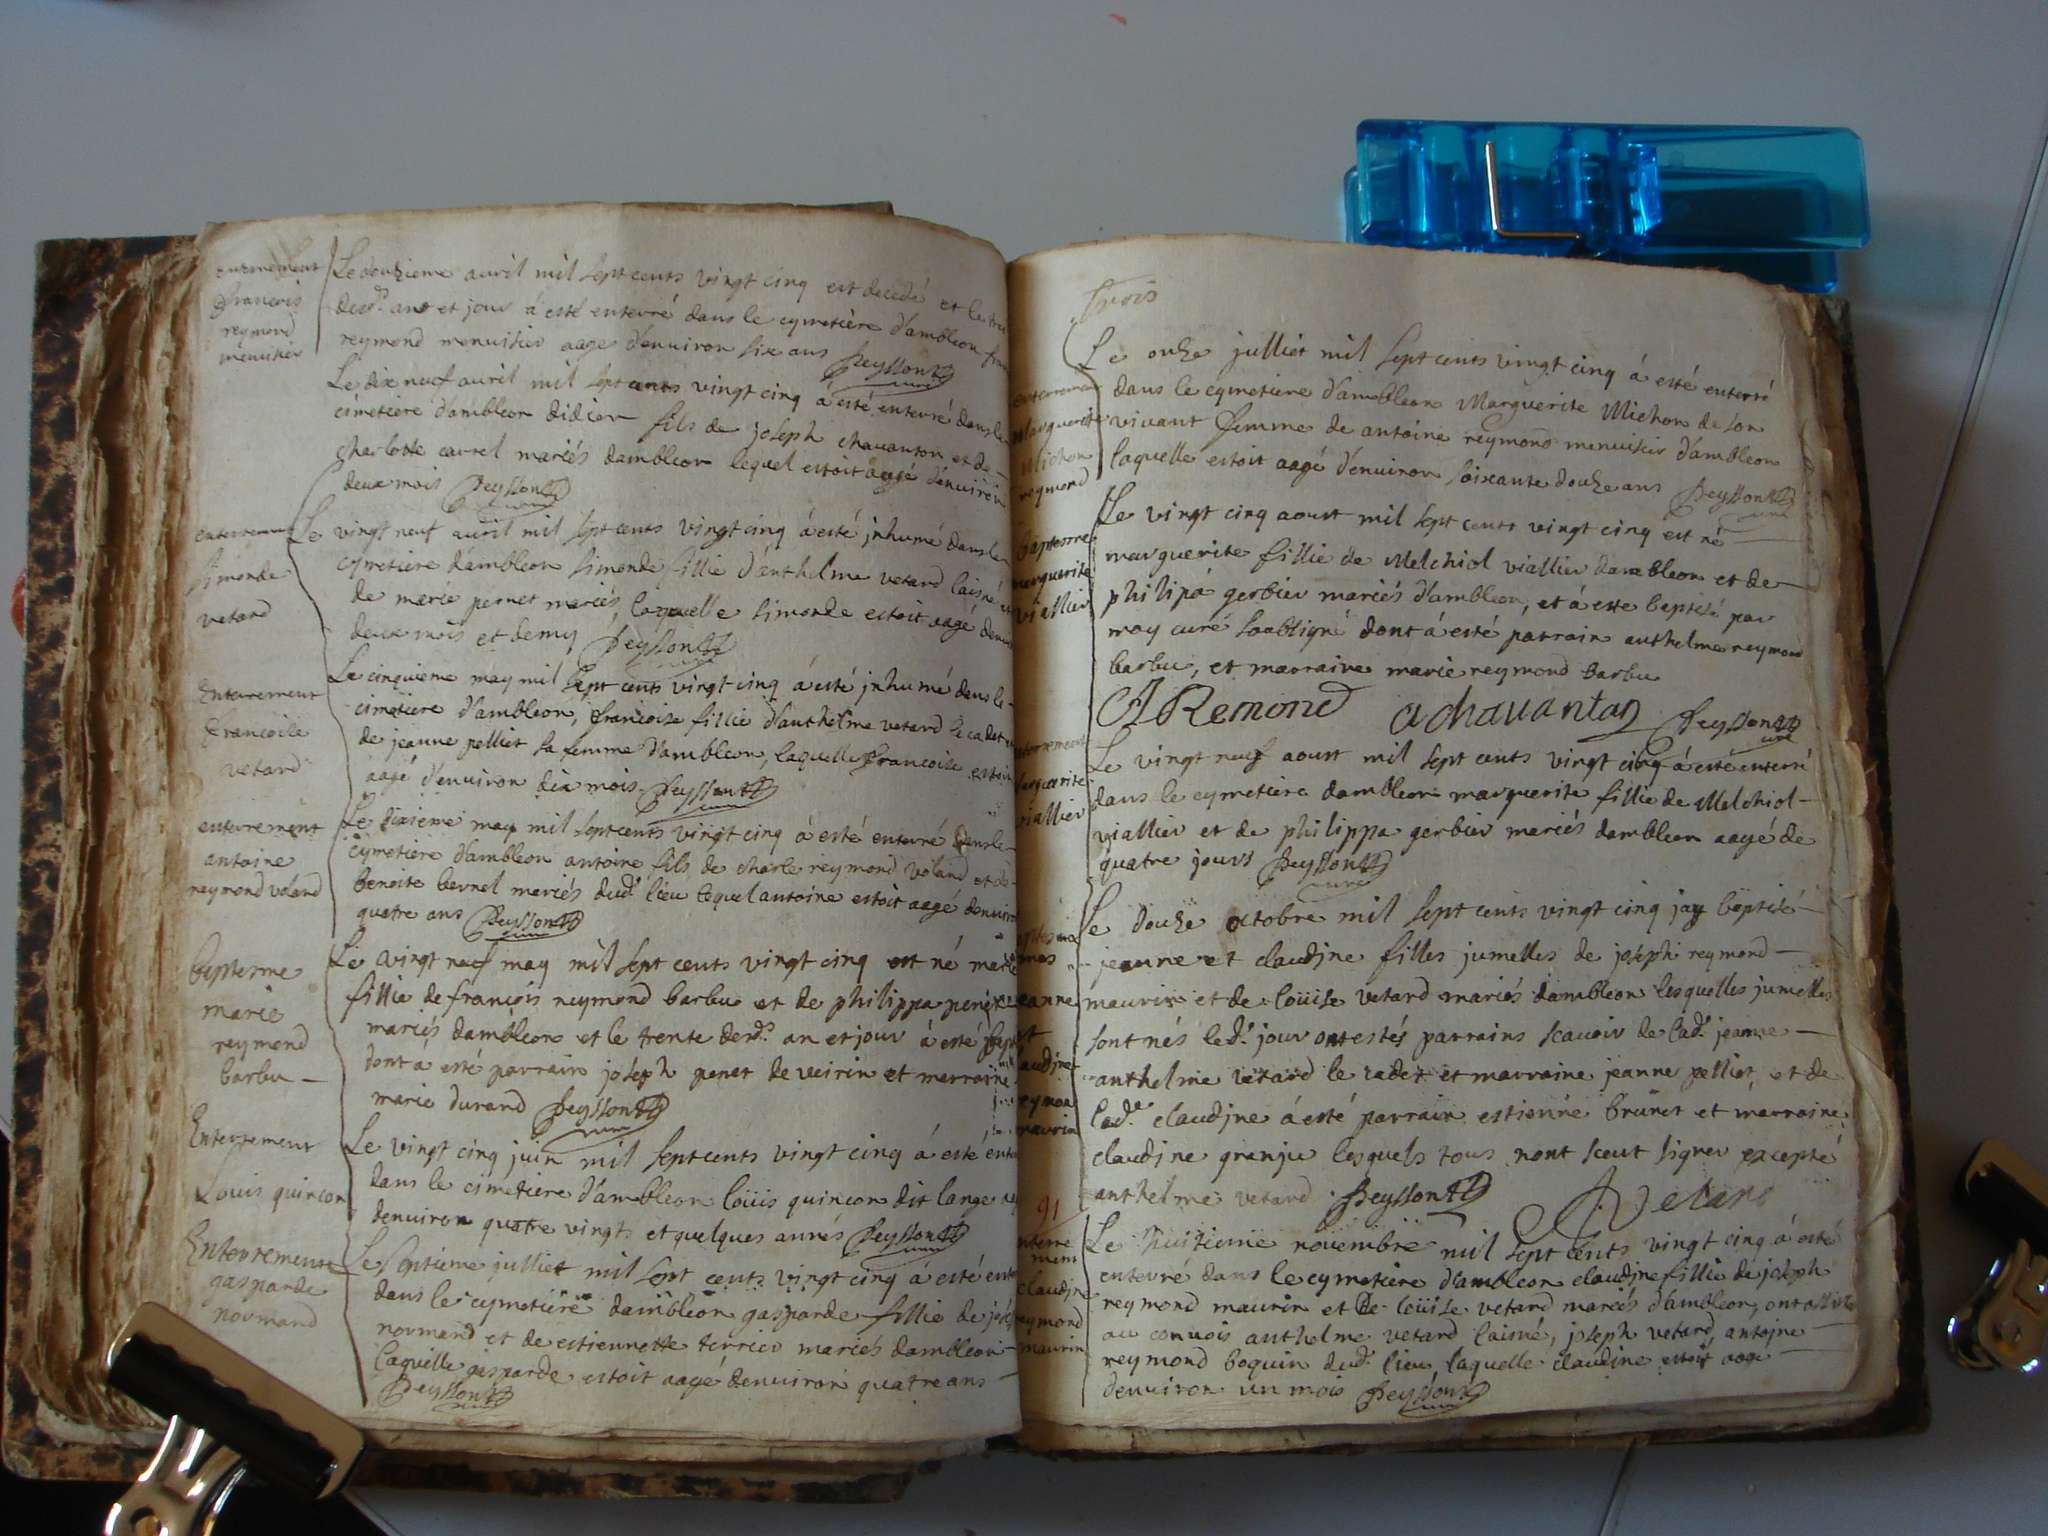 enterrement
francois
reymond
menusier
Le douzieme avril mil sept cents vingt cinq est decedé et le
desd. an et jour á esté enterré dans le cymetière d'ambleon
reymond menuisier aage d'environ six ans Peysson
curé
Le dix neuf avril mil sept cents vingt cinq á esté enterré dans le
cimetiere d'ambleon didier fils de joseph chavanton et de
charlotte carrel mariés dambleon lequel estoit aagé d'environ
deux mois Peysson
curé
enterrement
simonde
vetard
Le vingt neuf avril mil sept cents vingt cinq á esté jnhumé dans le
cymetiere d'ambleon simonde fillie d'anthelme vetard laisné
de marie pernet mariés, laquelle simonde estoit aagé
deux mois et demy Peysson
curé
Enterrement
francoise
vetard
Le cinquieme may mil sept cents vingt cinq á esté jnhumé dans le
cimetiere d'ambleon, francoise fillie d'anthelme vetard le cadet
de jeanne pelliet sa femme d'ambleon, laquelle francoise estoit
aagé d'environ dix mois Peysson
curé
enterrement
antoine
reymond voland
Le dixieme may mil sept cents vingt cinq á esté enterré dans le
cymetiere d'ambleon antoine fils de charle reymond voland et de
benoite bernel mariés dud. lieu lequel antoine estoit aagé denviron
quatre ans Peysson
curé
bapteme
marie
reymond
barbu
Le vingt neuf may mil sept cents vingt cinq est né marie
fillie de francois reymond barbu et de philippa
mariés dambleon et le trente desd. an et jour á esté
dont á esté parrain joseph penet de veirin et marraine
marie durand Peysson
curé
Enterrement
Louis quincon
Le vingt cinq juin mil sept cents vingt cinq á esté
dans le cimetiere d'ambleon loüis quincon dit lange
denviron quatre vingts et quelques annés Peysson
curé
Enterrement
gasparde
normand
Le septieme julliet mil sept cents vingt cinq á esté
dans le cymetiere dambleon gasparde fillie de
normand et de estiennette terrier mariés dambleon
laquelle gasparde estoit aagé denviron quatre ans
Peysson
curé
Trois
enterrement
Marguerite
Michon
reymond
Le onze julliet mil sept cents vingt cinq á esté enterré
dans le cymetiere d'ambleon Marguerite Michon de son
vivant femme de antoine reymond menuisier d'ambleon
laquelle estoit aagé d'environ soixante douze ans Peysson
curé
bapteme
marguerite
viallier
Le vingt cinq aoust mil sept cents vingt cinq est né
marguerite fillie de Melchiol viallier dambleon et de
philipa gerbier mariés d'ambleon, et á este baptisé par
moy curé soubsigné dont á esté parrain anthelme reymond
barbu, et marraine marie reymond barbu
A Remond achavantan Peysson
curé
enterrement
marguerite
viallier
Le vingt neuf aoust mil sept cents vingt cinq á esté enterré
dans le cymetiere dambleon marguerite fillie de Melchiol
viallier et de philippa gerbier mariés dambleon aagé de
quatre jours Peysson
curé
jeanne
et
claudjne
reymond
maurin
Le douze octobre mil sept cents vingt cinq jay baptisé
jeanne et claudjne filles jumelles de joseph reymond
maurin et de loüise vetard mariés dambleon lesquelles jumelles
sont nés led. jour ont estés parrains scavoir de lad. jeanne
anthelme vetard le cadet et marraine jeanne pelliet, et de
lad. claudjne á esté parrain estienne brunet et marraine
claudine granju lesquels tous nont sceut signer excepté
anthelme vetard Peysson A Vetard
91
enterre
ment
claudjne
reymond
maurin
Le huitieme novembre mil sept cents vingt cinq á esté
enterré dans le cymetiere d'ambleon claudjne fillie de joseph
reymond maurin et de loüise vetard mariés d'ambleon, ont assisté
au convois anthelme vetard laisné, joseph vetard, antoine
reymond boquin dud. lieu laquelle claudine estoit aagé
denviron un mois Peysson
curé